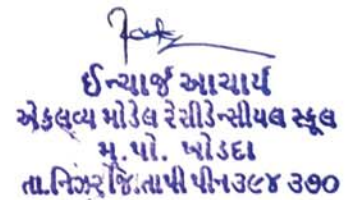 ઈન્ચાર્જ આચાર્ય
એકલવ્ય મોડેલ રેસીડેન્સીયલ સ્કૂલ
મુ. પો. ખોડદા
તા.નિઝર જિ.તાપી પીન૩૯૪ ૩૭૦